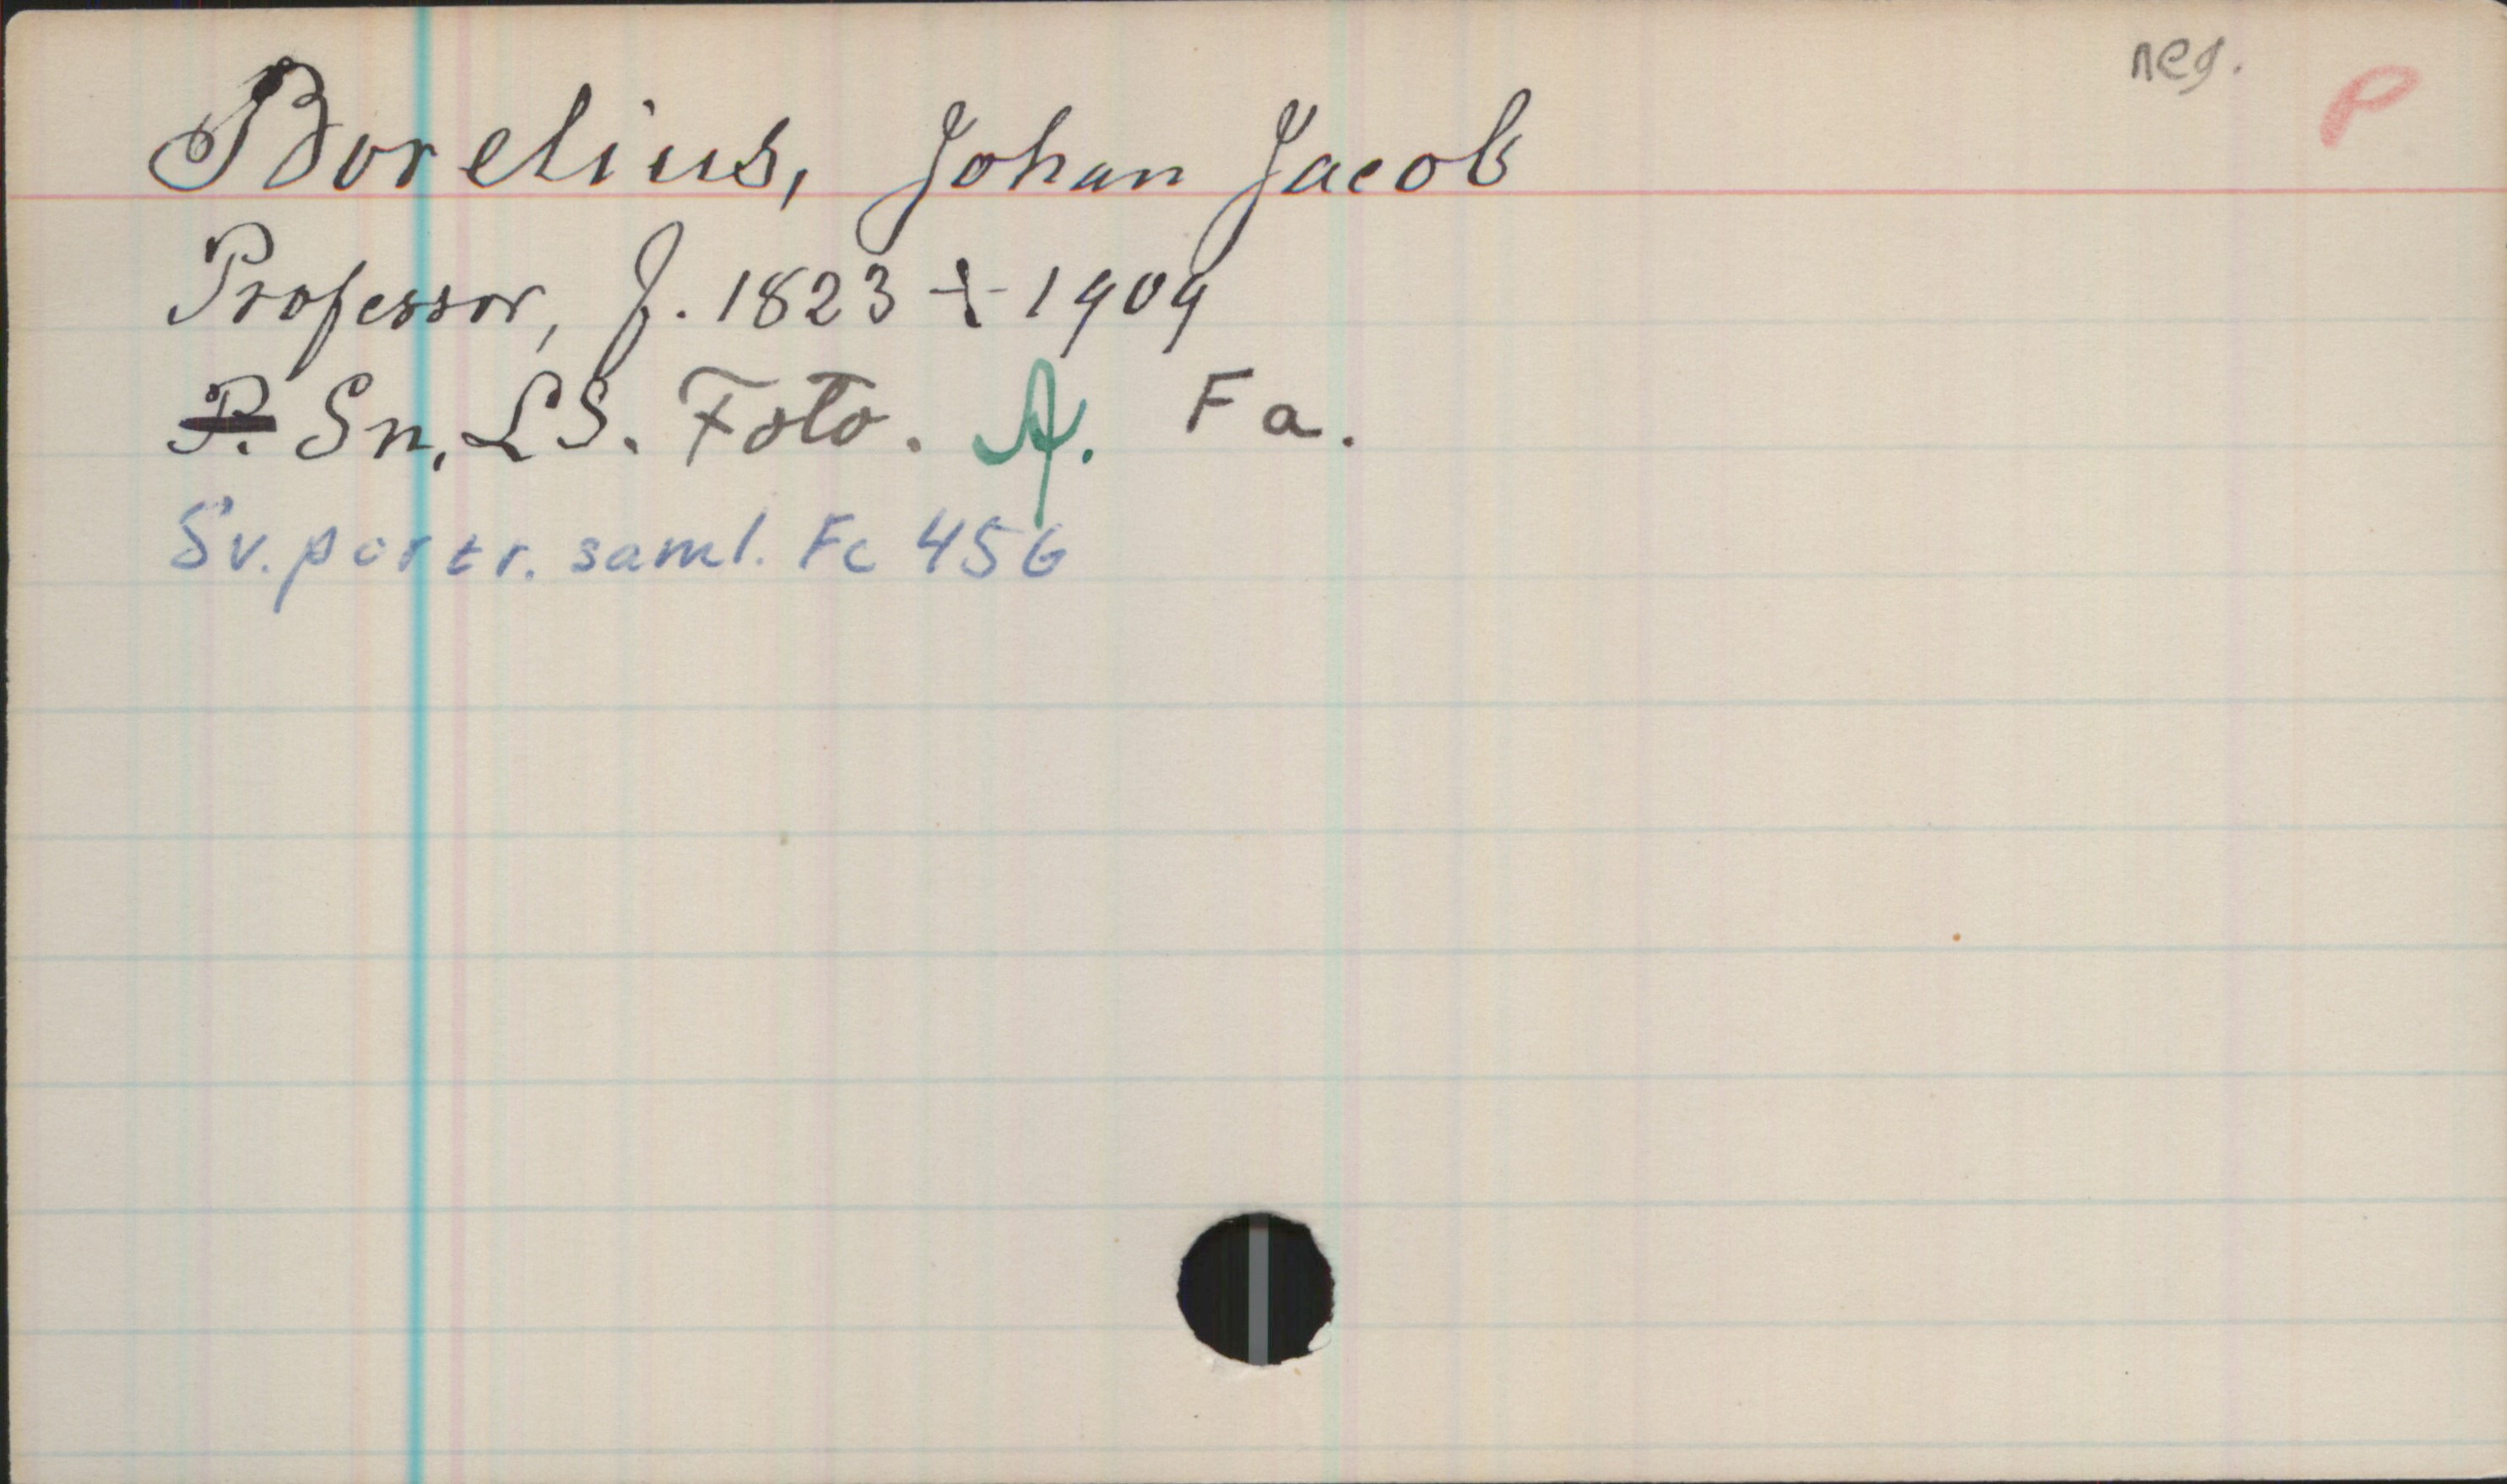 neg. P
Borelius, Johan Jacob
Professor, f. 1823 † 1909
P. Sn, LS. Foto. A. Fa.
Sv. portr. saml. Fc 456